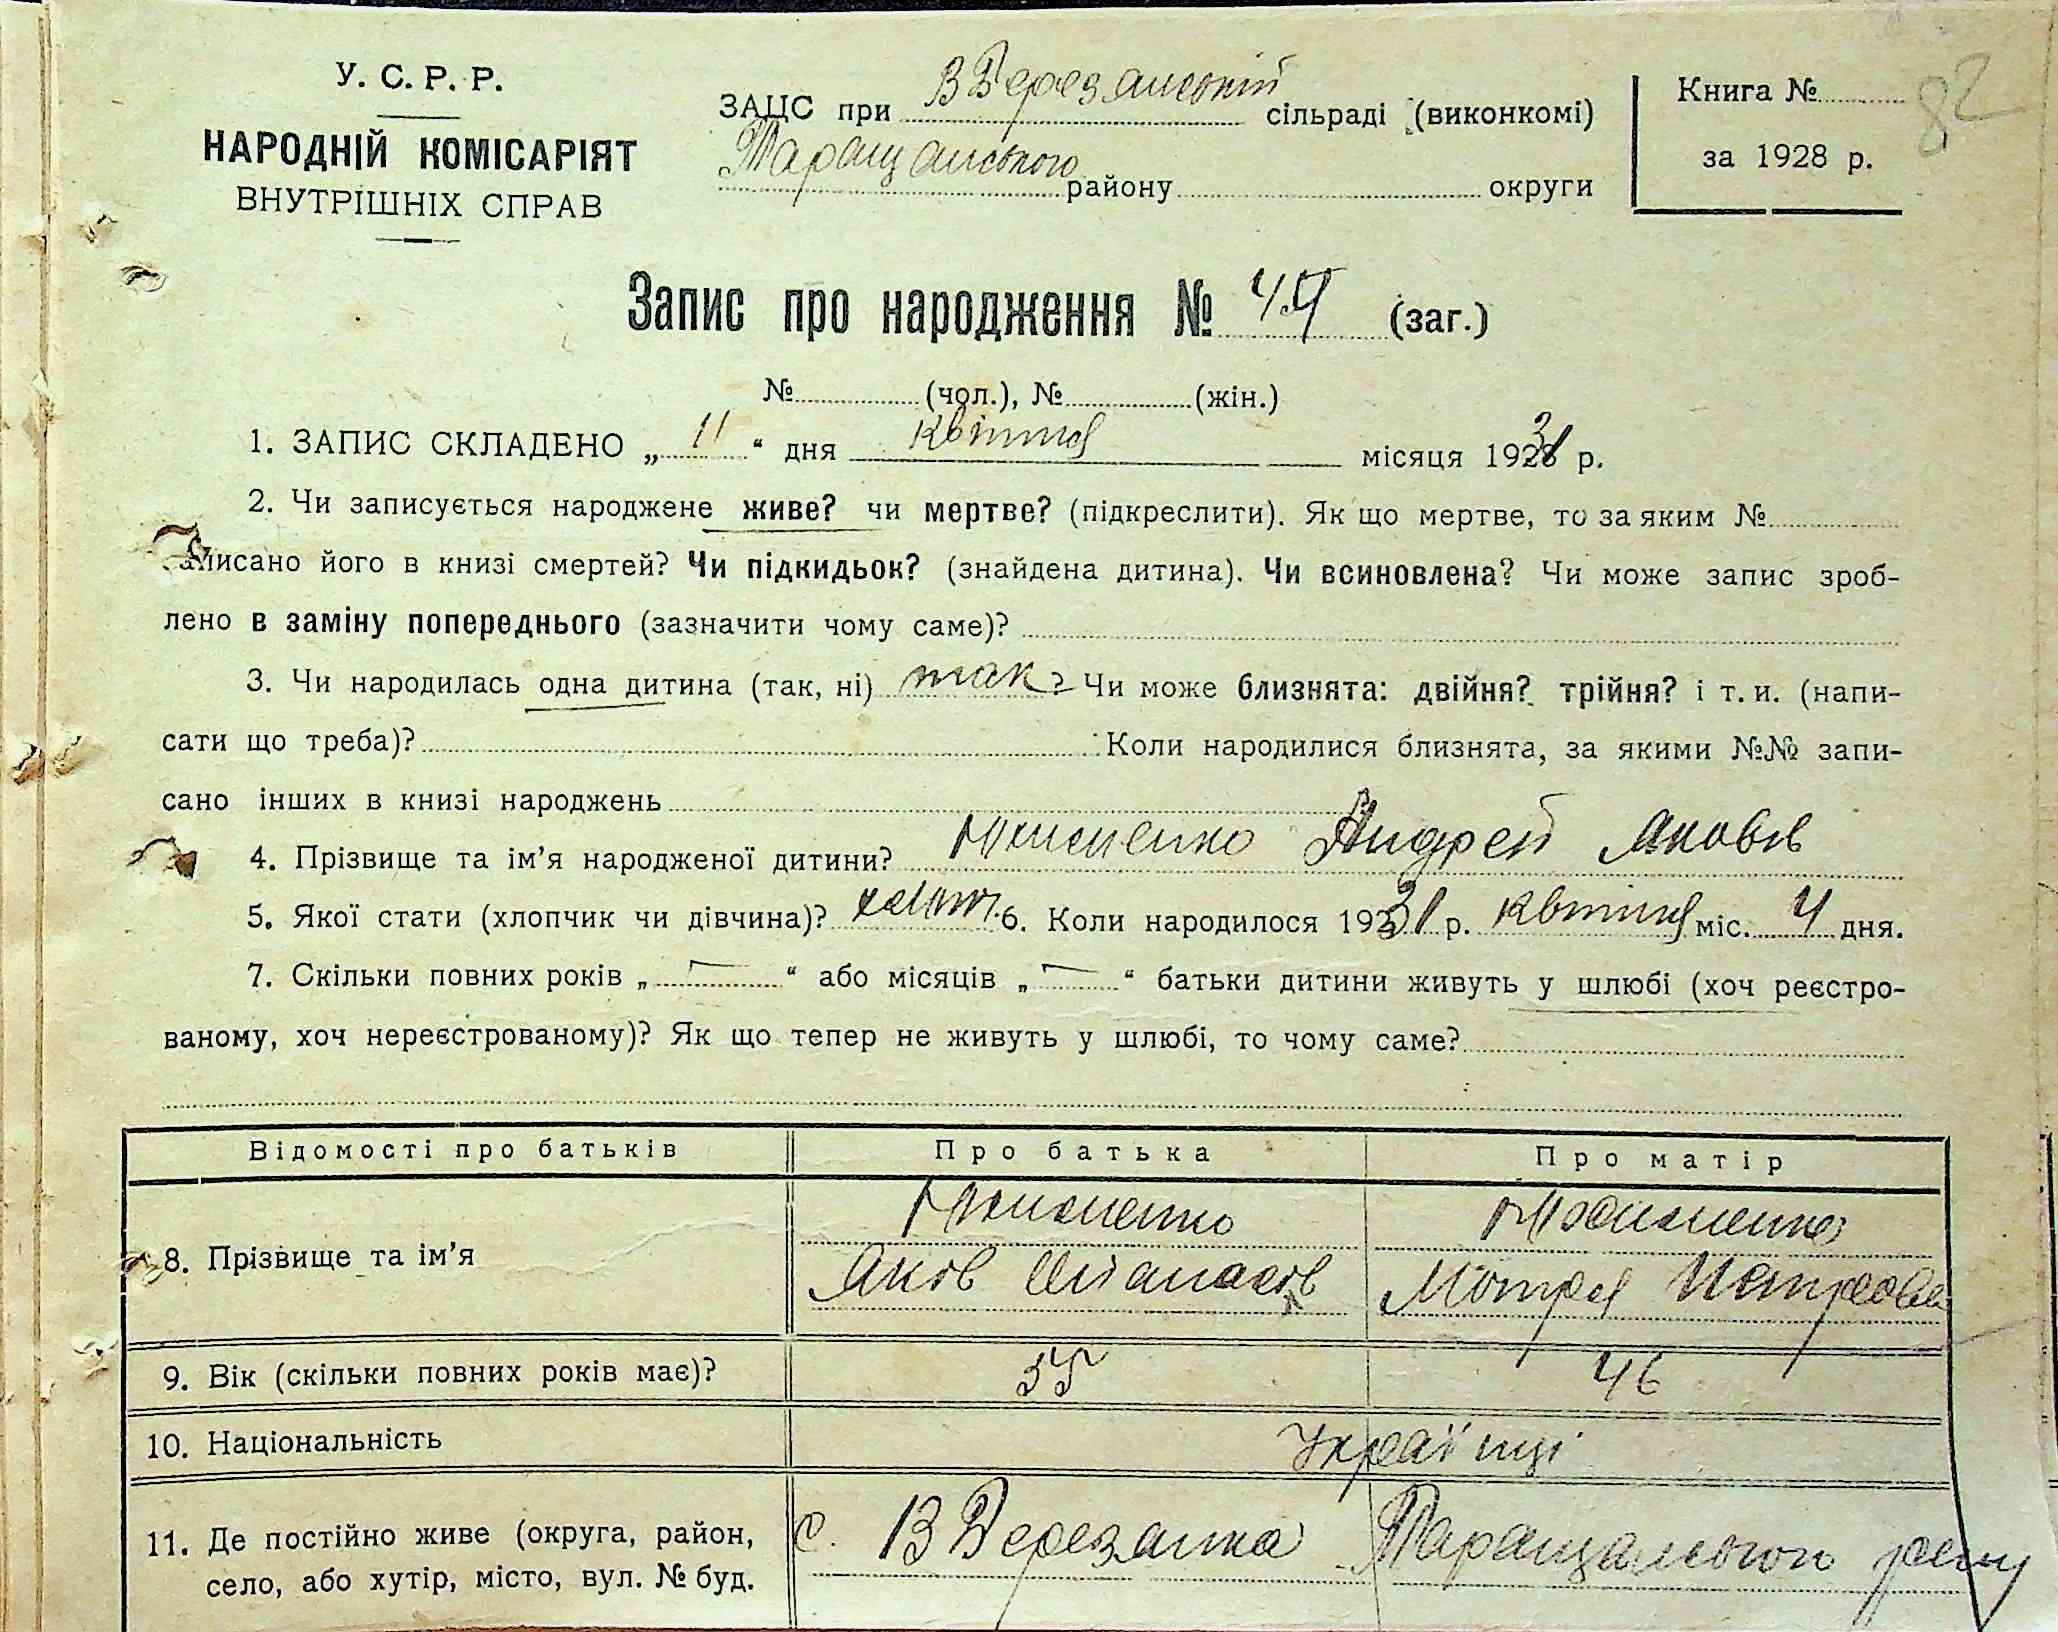 82
У. С. Р. Р.
НАРОДНІЙ КОМІСАРІЯТ
ВНУТРІШНІХ СПРАВ
ЗАЦС при В Березанській сільраді (виконкомі)
Таращанського району округи
Книга №
за 1928 р.
Запис про народження № (заг.)
№ (чол.), № (жін.)
1. ЗАПИС СКЛАДЕНО „ 11 “ дня квітня місяця 1931 р.
2. Чи записується народжене живе? чи мертве? (підкреслити). Як що мертве, то за яким №
писано його в книзі смертей? Чи підкидьок? (знайдена дитина). Чи всиновлена? Чи може запис зроб-
лено в заміну попереднього (зазначити чому саме)?
3. Чи народилась одна дитина (так, ні) так ? Чи може близнята: двійня? трійня? і т. и. (напи-
сати що треба)? Коли народилися близнята, за якими №№ запи-
сано інших в книзі народжень
4. Прізвище та ім’я народженої дитини? Андрей Яковів
5. Якої стати (хлопчик чи дівчина)? 6. Коли народилося 1931 р. квітня міс. 4 дня.
7. Скільки повних років „ — “ або місяців „ — “ батьки дитини живуть у шлюбі (хоч реєстро-
ваному, хоч нереєстрованому)? Як що тепер не живуть у шлюбі, то чому саме?
Відомості про батьків Про батька Про матір
8. Прізвище та ім’я
Яків Опанасов Мотря Петрова
9. Вік (скільки повних років має)? 55 46
10. Національність Українці
11. Де постійно живе (округа, район, с. В Березанка Таращанського району
село, або хутір, місто, вул. № буд.